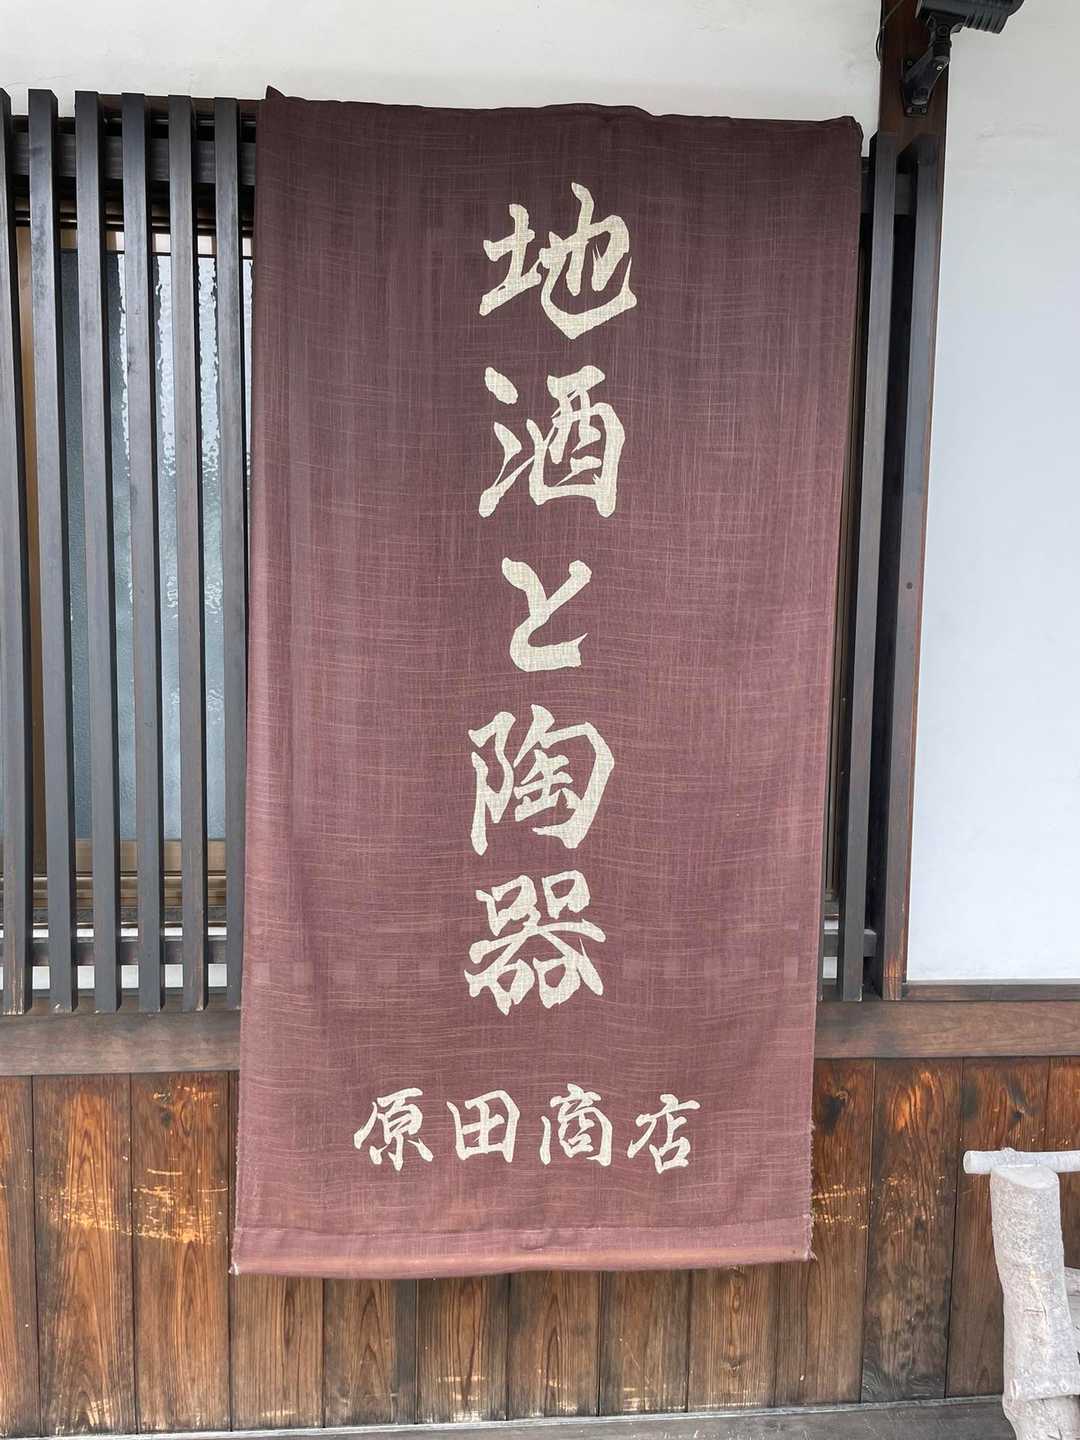 地酒と陶器
原田商店